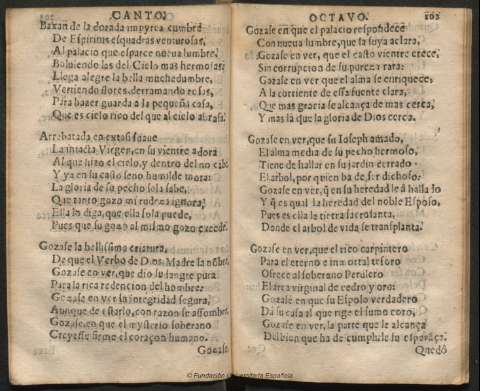 CANTO.
Baxan de la dorada impyrea cumbre
De Espiritus esquadras venturosas,
Al palacio que esparce nueua lumbre,
Boluiendo las del Cielo mas hermosas:
Llega alegre la bella muchedumbre,
Vertiendo flores, derramando rosas,
Para hazer guarda a la pequeña casa,
Que es cielo rico del que al cielo abrasa.
Arrebatada en extasi suaue
La intacta Virgen, en su vientre adora
Al que hizo el cielo, y dentro del no cabe
Y ya en su casto seno humilde mora:
La gloria de su pecho solo sabe,
Que tanto gozo mi rudeza ignora,
Ella lo diga, que ella sola puede,
Pues que su gozo al mismo gozo excede.
Gozase la bellissima criatura,
De que el Verbo de Dios Madre la nõbre
Gozase en ver, que dio su sangre pura
Para la rica redencion del hombre:
Gozase en ver su integridad segura,
Aunque de estarlo, con razon se assombre
Gozase, en que el mysterio soberano
Creyesse firme el coraçon humano.
Gozase
OCTAVO.
102
Gozase en que el palacio resplandece
Con nueua lumbre, que la suya aclara,
Gozase en ver, que el casto vientre crece,
Sin corrupcion de su pureza rara:
Gozase en ver que el alma se enriquece
A la corriente de essa fuente clara,
Que mas gracia se alcança de mas cerca,
Y mas la que la gloria de Dios cerca.
Gozase en ver, que su Ioseph amado,
El alma media de su pecho hermoso,
Tiene de hallar en su jardin cerrado
El arbol, por quien ha de ser dichoso:
Gozase en ver, q̃ en su heredad le á hallado
Y q̃ es qual la heredad del noble Esposo,
Pues es ella la tierra sacrosanta,
Donde el arbol de vida se transplanta.
Gozase en ver, que el rico carpintero
Para el eterno e inmortal tesoro
Ofrece al soberano Perulero
El arca virginal de cedro y oro:
Gozase en que su Esposo verdadero
Dá su casa al que rige el sumo coro,
Gozase en ver, la parte que le alcança
Del bien que ha de cumplir su esperãça.
Quedó
© Fundación Universitaria Española